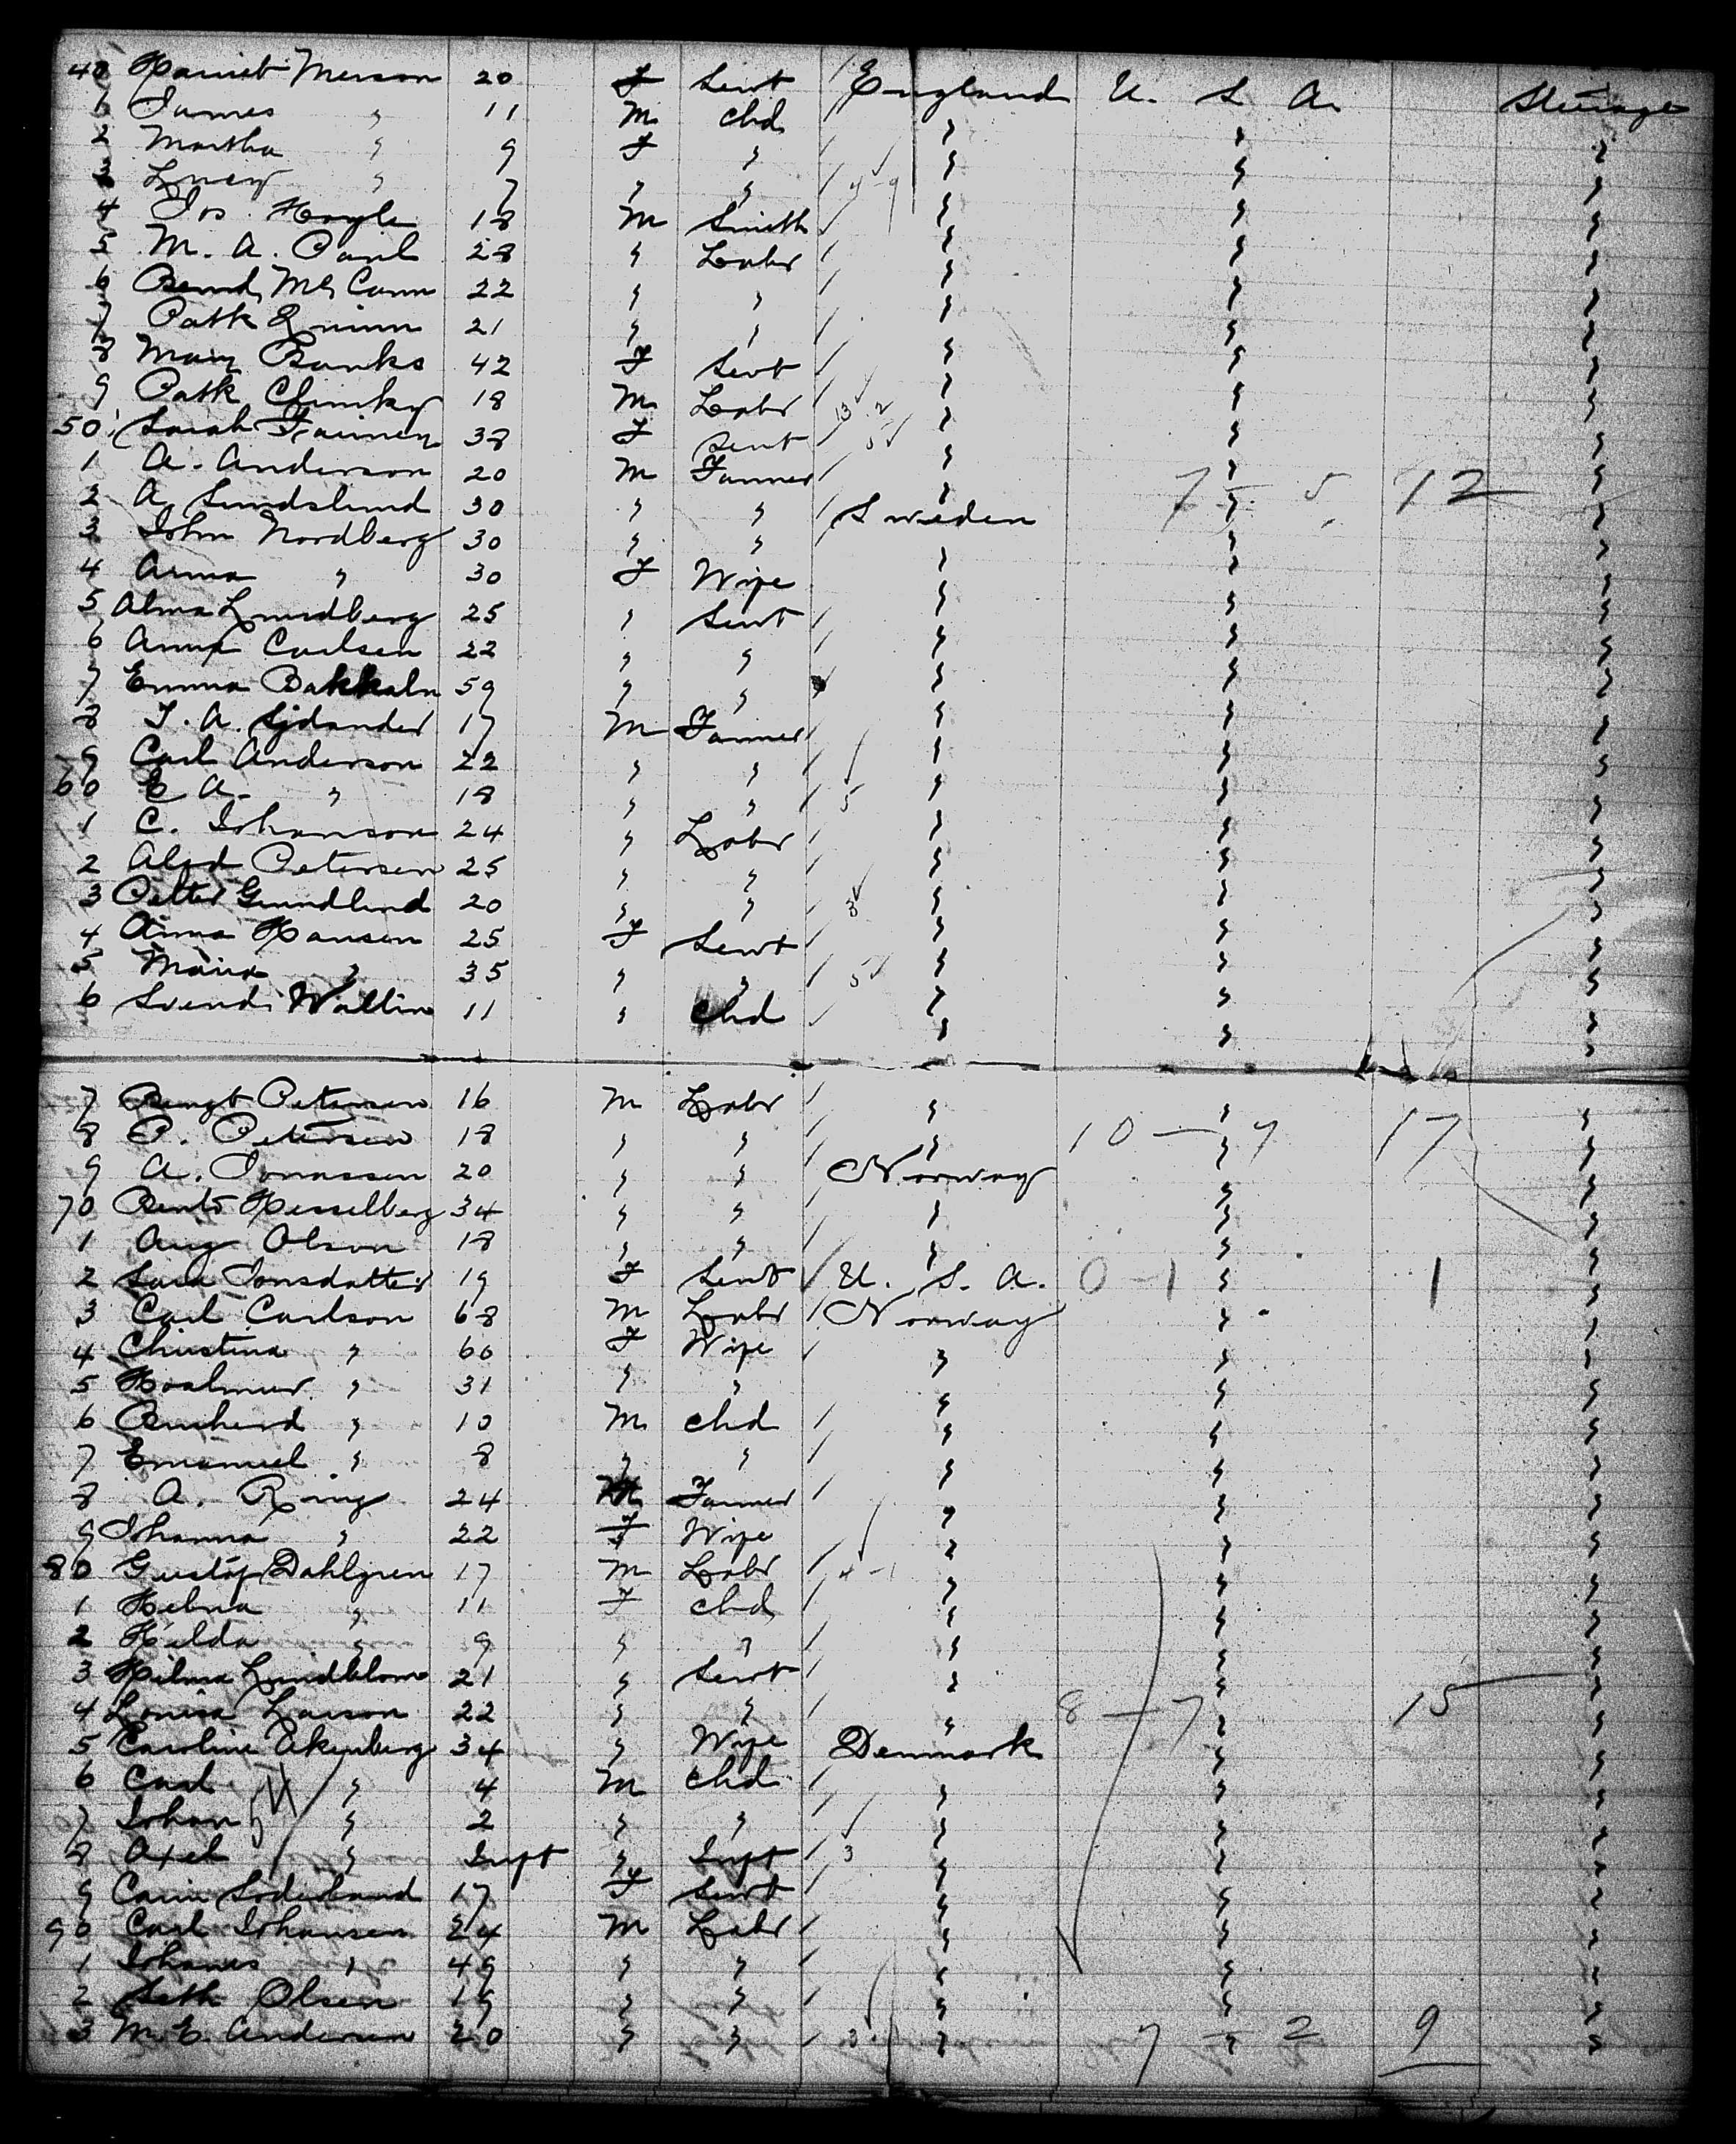 40 Harriet Merson 20 F Servt / England U. S. A. Steerage
1 James " 11 M Chd / " " "
2 Martha " 9 F " / " " "
3 Lucy " 7 " " / 4-9 " " "
4 Jos. Hoyle 18 M Smith / " " "
5 M. A. Paul 28 " Labr / " " "
6 Bernd Mc Cann 22 " " / " " "
7 Patk Quinn 21 " " / " " "
8 Mary Banks 42 F Servt / " " "
9 Patk 18 M Labr / 13 2 " " "
50 Sarah 38 F Servt / 5 " " "
1 A. Anderson 20 M Farmer / " " "
2 A. Lundslund 30 " " / Sweden 7 - 5 12 "
3 John Nordberg 30 " " " " "
4 Anna " 30 F Wife " " "
5 Alma Lundberg 25 " Servt / " " "
6 Anna Carlsen 22 " " / " " "
7 Emma 59 " " " " "
8 J. A. Sjdander 17 M Farmer / " " "
9 Carl Anderson 22 " " / " " "
60 E A. " 18 " " / 5 " " "
1 C. Johanson 24 " Labr / " " "
2 Alfd Petersen 25 " " / " " "
3 Petter Grundlund 20 " " / 3 " " "
4 Anna Hansen 25 F Servt / " " "
5 Maria " 35 " " / 5 " " "
6 Svend Wallin 11 " Chd / " " "
7 Bengt Petersen 16 M Labr / " " "
8 P. Petersen 18 " " / " 10 - 7 17 "
9 A. Jonassen 20 " " / Norway " "
70 Hesselberg 34 " " / " " "
1 Aug Olson 18 " " / " " "
2 Sara Jonsdatter 19 F Servt / U. S. A. 0-1 " 1 "
3 Carl Carlson 68 M Labr / Norway " "
4 Christina " 60 F Wife / " " "
5 Hoalmer " 31 " " " " "
6 " 10 M Chd / " " "
7 Emanuel " 8 " " / " " "
8 A. Ring 24 M Farmer / " " "
9 Johanna " 22 F Wife " " "
80 Gustaf Dahlgren 17 M Labr / 4-1 " " "
1 Helma " 11 F Chd / " " "
2 Hilda " 9 " " / " " "
3 Hilma Lundblom 21 " Servt / " " "
4 Louisa Larson 22 " " / " 8 - 7 15 "
5 Caroline Akerberg 34 " Wife Denmark " "
6 Carl " 4 M Chd / " " "
7 Johan " 2 " " / " " "
8 Axel " Inft " Inft / 3 " " "
9 Carin Soderbund 17 F Servt " " "
90 Carl Johansen 24 M Labr / " " "
1 Johanes " 49 " " / " " "
2 Seth Olsen 19 " " / " " "
3 M. E. Anderson 20 " " / 3 " 7 - 2 9 "